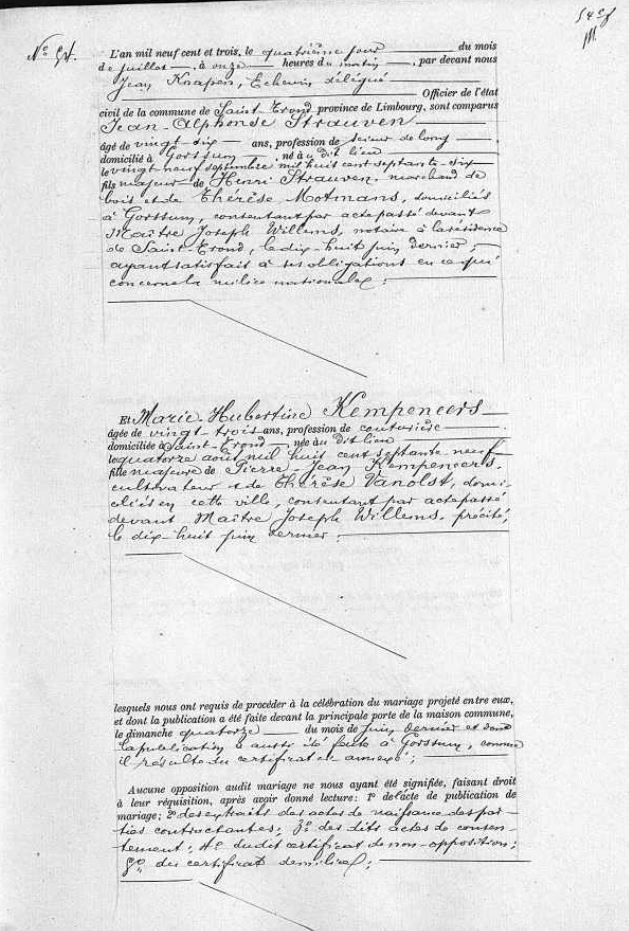 54e f
N° 54.
L'an mil neuf cent et trois, le quatrième jour du mois
de juillet, à onze heures du matin, par devant nous
Jean Knapen, Echevin délégué
Officier de l'état
civil de la commune de Saint-Trond province de Limbourg, sont comparus
Jean-Alphonse Strauven
âgé de vingt-six ans, profession de scieur de long
domicilié à Gorssum, né au dit lieu
le vingt-neuf septembre mil huit cent septante-six
fils majeur de Henri Strauven, marchand de
bois et de Thérèse Motmans, domiciliés
à Gorssum, consentant par acte passé devant
Maître Joseph Willems, notaire à la résidence
de Saint-Trond, le dix-huit juin dernier,
ayant satisfait à ses obligations en ce qui
concerne la milice nationale;
Et Marie-Hubertine Kempeneers
âgée de vingt-trois ans, profession de couturière
domiciliée à Saint-Trond, née au dit lieu
le quatorze août mil huit cent septante neuf
fille majeure de Pierre-Jean Kempeneers,
cultivateur et de Thérèse Vanolst, domi-
ciliés en cette ville, consentant par acte passé
devant Maître Joseph Willems, précité,
le dix-huit juin dernier;
lesquels nous ont requis de procéder à la célébration du mariage projeté entre eux,
et dont la publication a été faite devant la principale porte de la maison commune,
le dimanche quatorze du mois de Juin dernier et dont
la publication a aussi été faite à Gorssum, comme
il résulte du certificat ci annexé;
Aucune opposition audit mariage ne nous ayant été signifiée, faisant droit
à leur réquisition, après avoir donné lecture: 1° de l'acte de publication de
mariage; 2° des extraits des actes de naissance des par-
ties contractantes; 3° des dits actes de consen-
tement; 4° du dit certificat de non-opposition;
5° du certificat de milice;